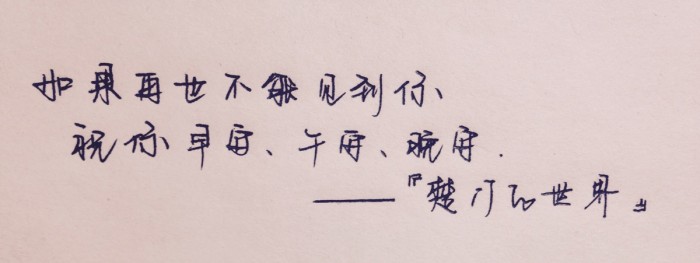 如果再也不能见到你、
祝你早安、午安、晚安.
——『楚门的世界』